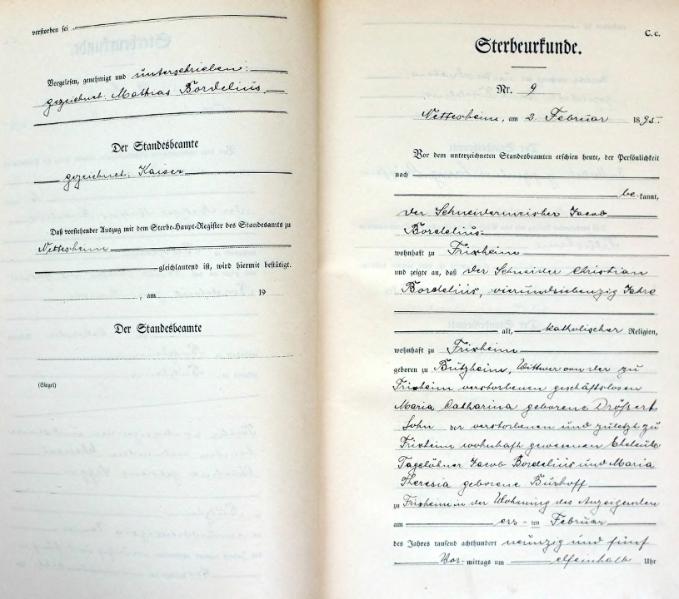 verstorben sei
Vorgelesen, genehmigt und unterschrieben:
gezeichnet: Mathias Bordelius.
Der Standesbeamte
gezeichnet: Kaiser
Daß vorstehender Auszug mit dem Sterbe-Haupt-Register des Standesamts zu
Nettesheim
gleichlautend ist, wird hiermit bestätigt.
, am 19
Der Standesbeamte
(Siegel)
C. c.
Sterbeurkunde.
Nr. 9
Nettesheim, am 2. Februar 1895.
Vor dem unterzeichneten Standesbeamten erschien heute, der Persönlichkeit
nach
be kannt,
der Schneidermeister Jacob
Bordelius.
wohnhaft zu Frixheim
und zeigte an, daß der Schneider Christian
Bordelius, vierundsiebenzig Jahre
alt, katholischer Religion,
wohnhaft zu Frixheim
geboren zu Butzheim, Wittwer von der zu
Frixheim verstorbenen geschäftslosen
Maria Catharina geborene
Sohn der verstorbenen und zuletzt zu
Frixheim wohnhaft gewesenen Eheleute
Tagelöhner Jacob Bordelius und Maria
Theresia geborene
zu Frixheim in der Wohnung des Anzeigenden
am ers ten Februar
des Jahres tausend achthundert neunzig und fünf
Vor mittags um elfeinhalb Uhr